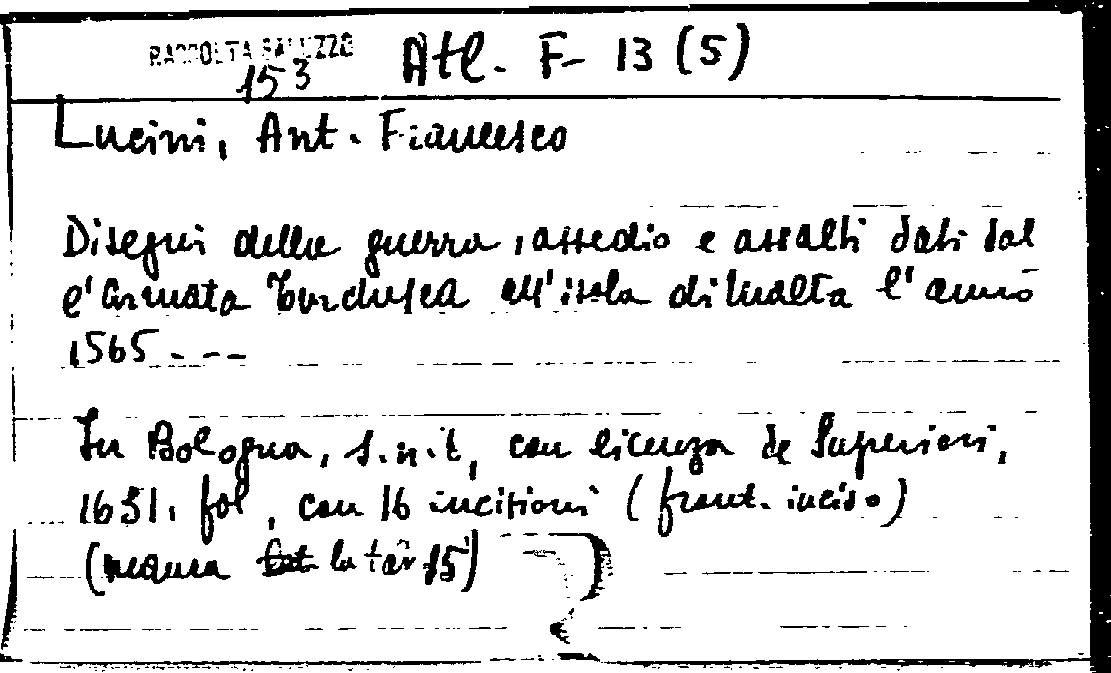 RACCOLTA SALUZZO Atl. F- 13 (5)
153
Lucini, Ant. Francesco
Disegni della guerra, assedio e assalti dati dal
l'armata turchesca all'isola di Malta l'anno
1565 ----
In Bologna, s.n.t, con licenza de Superiori,
1631. fol, con 16 incisioni (front. inciso)
(manca la tav 15)